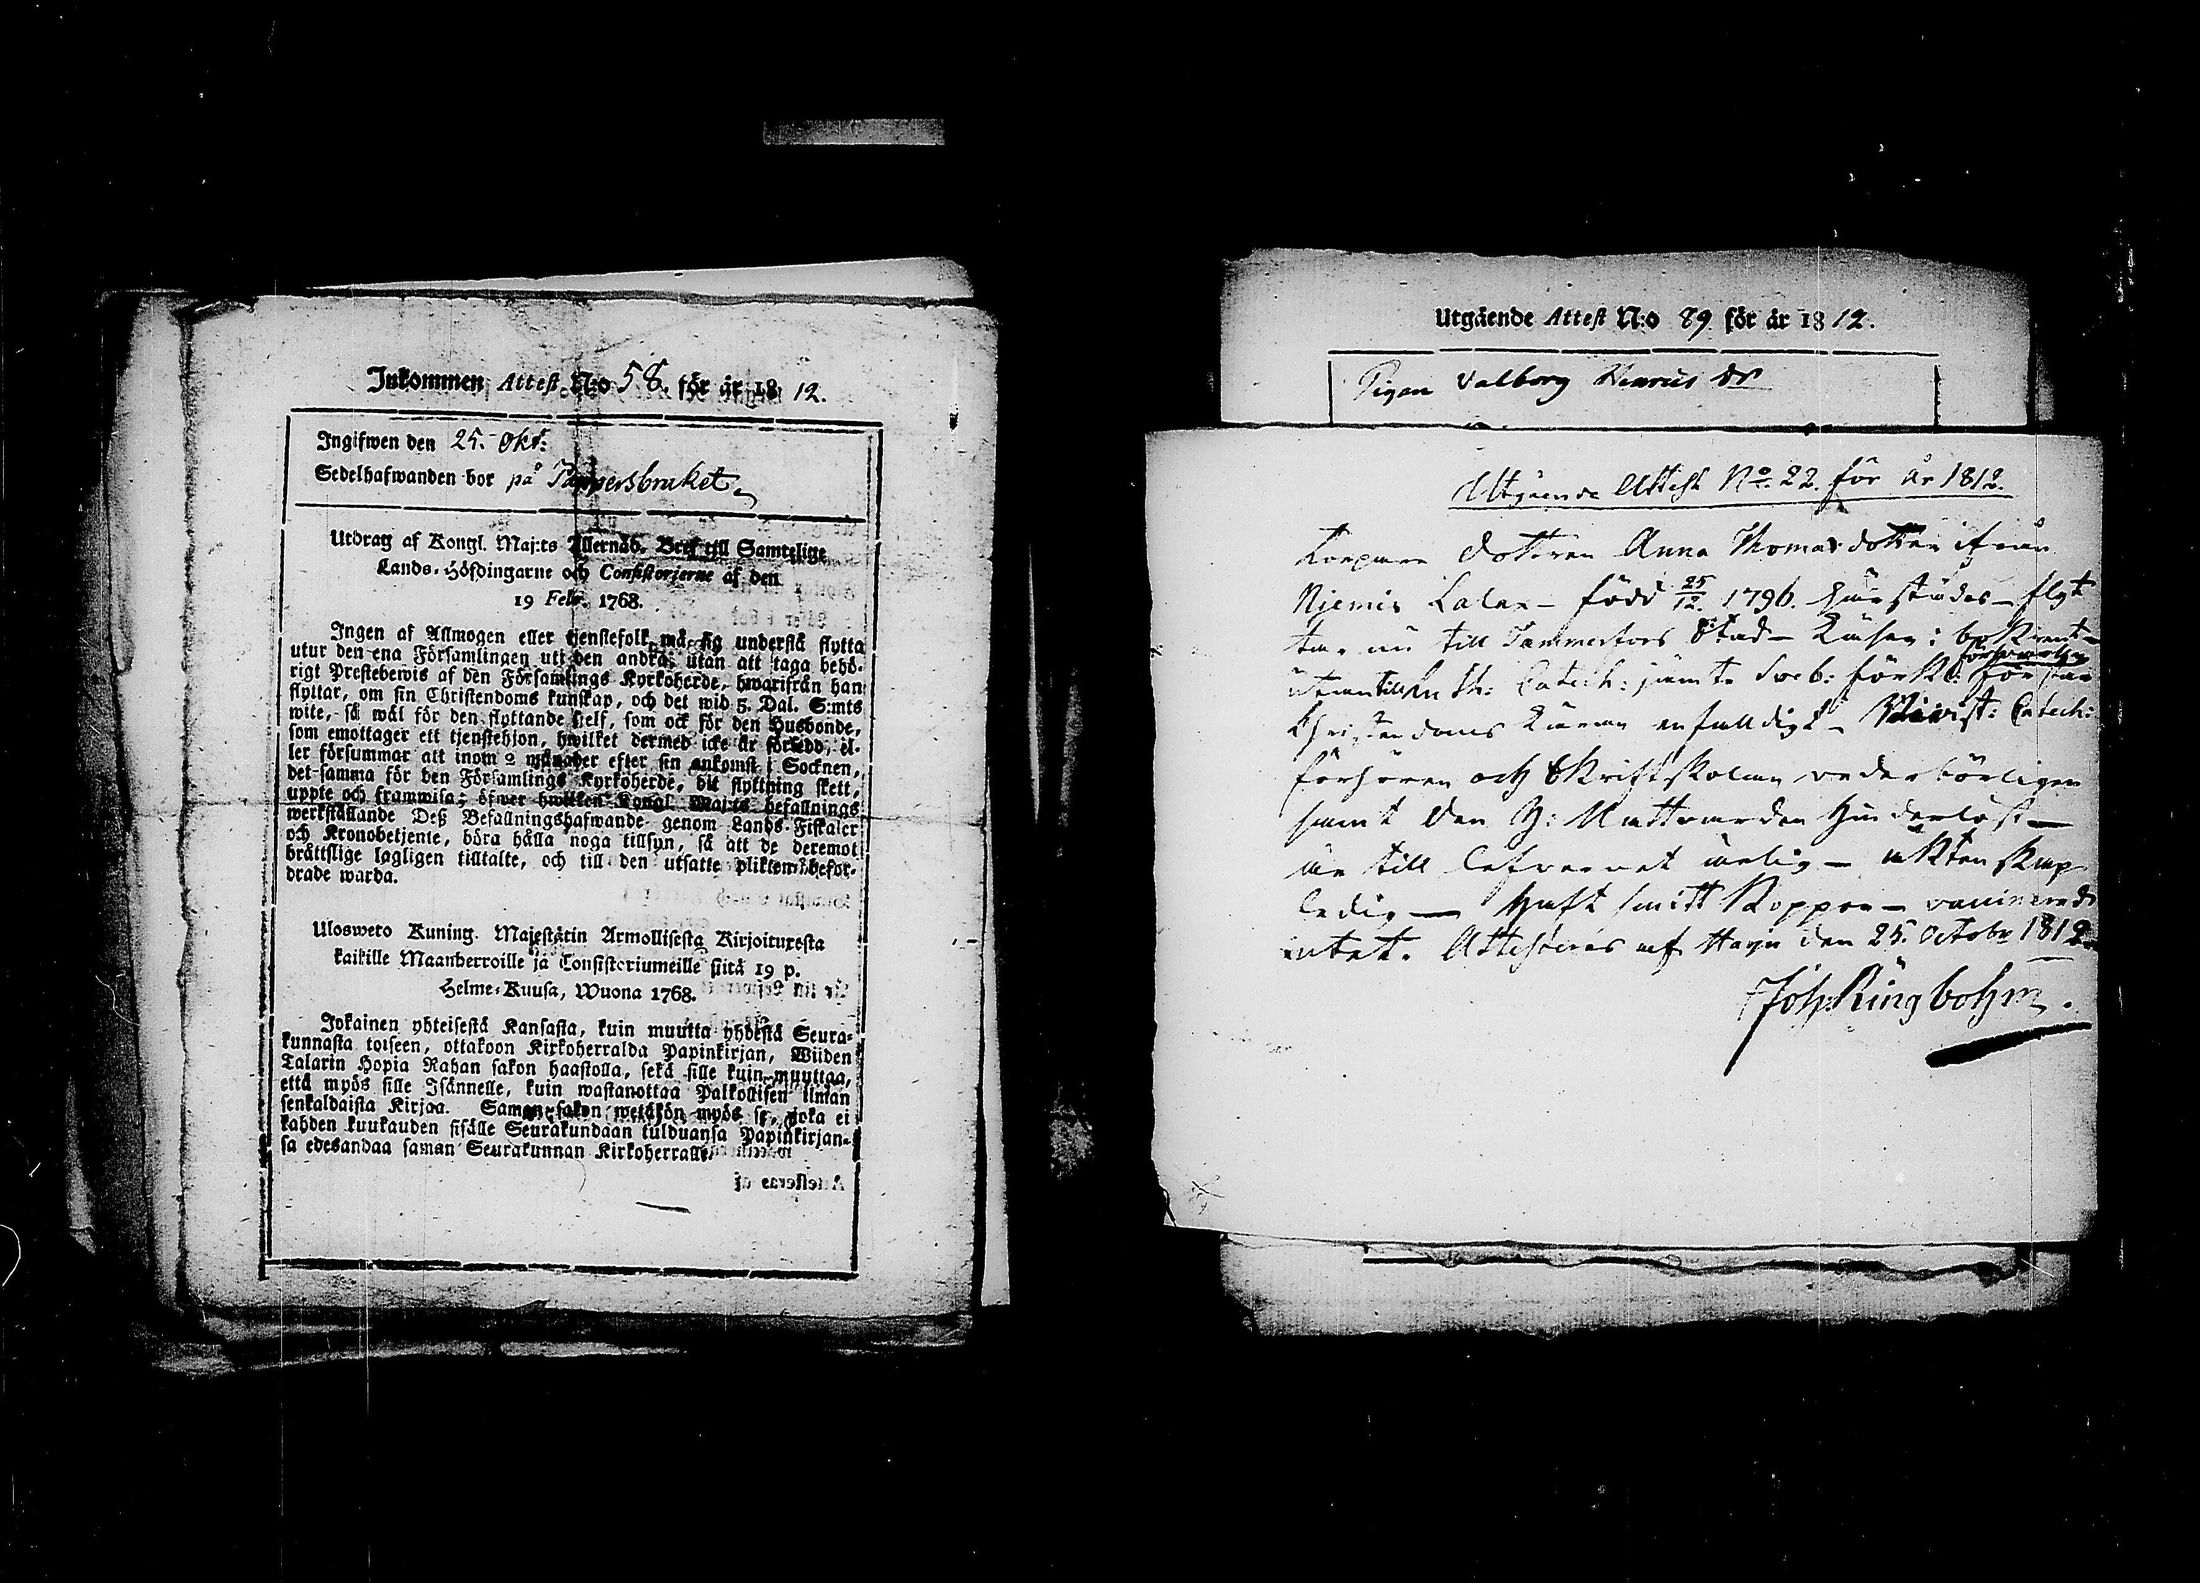 Inkommen Attest N:o 58. för år 18 12.
Ingifwen den 25. Okt:
Sedelhafwanden bor på Pappersbruket
Utdrag af Kongl. Maj:ts Allernåd. Bref till Samtelige
Lands-Höfdingarne och Consistorierne af den
19 Febr. 1768.
Ingen af Allmogen eller tjenstefolk må sig understå flytta
utur den ena Församlingen uti den andra, utan att taga behö-
rigt Prestebewis af den Församlings Kyrkoherde, hwarifrån han
flyttar, om sin Christendoms kunskap, och det wid 5. Dal. S:mts
wite, så wäl för den flyttande sielf, som ock för den Husbonde,
som emottager ett tjenstehjon, hwilket dermed icke är försedd, el-
ler försummar att inom 2 månader efter sin ankomst i Socknen,
det samma för den Församlings Kyrkoherde, dit flyttning skett,
uppte och framwisa; öfwer hwilken Kongl. Maj:ts befallnings
werkställande Deß Befallningshafwande genom Lands-Fiskaler
och Kronobetjente, böra hålla noga tillsyn, så att de deremot
bråttslige lagligen tilltalte, och till den utsatte plikten befor-
drade warda.
Ulosweto Kuning. Majestätin Armollisesta Kirjoituxesta
kaikille Maanherroille ja Consistoriumeille siitä 19 p.
Helme-Kuusa, Wuona 1768.
Jokainen yhteisestä Kansasta, kuin muutta yhdestä Seura-
kunnasta toiseen, ottakoon Kirkoherralda Papinkirjan, Wiiden
Talarin Hopia Rahan sakon haastolla, sekä sille kuin muuttaa,
että myös sille Isännelle, kuin wastanottaa Palkollisen ilman
senkaldaista Kirjaa. Saman sakon wetäkön myös se, joka ei
kahden kuukauden sisälle Seurakundaan tulduansa Papinkirjan-
sa edesandaa saman Seurakunnan Kirkoherralle.
Attesteras af
Utgående Attest N:o 89. för år 18 12.
Pigan Valborg dr
Utgående Attest No. 22. för år 1812.
Dottren Anna Thomas dotter ifrån
Njemis Lalax - född 25/12. 1796. härstädes - flyt
tar nu till Tammerfors Stad - Läser: bokrent -
utantill Catech: jämte Sveb: förkl: förswarlig förstår
Christendoms Läran enfalldigt - Catech:
förhören och Skriftskolan vederbörligen
samt den H: Nattvarden hinderlöst -
är till lefvernet ärlig - äktenskap
ledig - haft smitt Koppor - vaccinerad
intet. Attesteras af den 25. Octobr 1812.
Joh: Ringbohm.